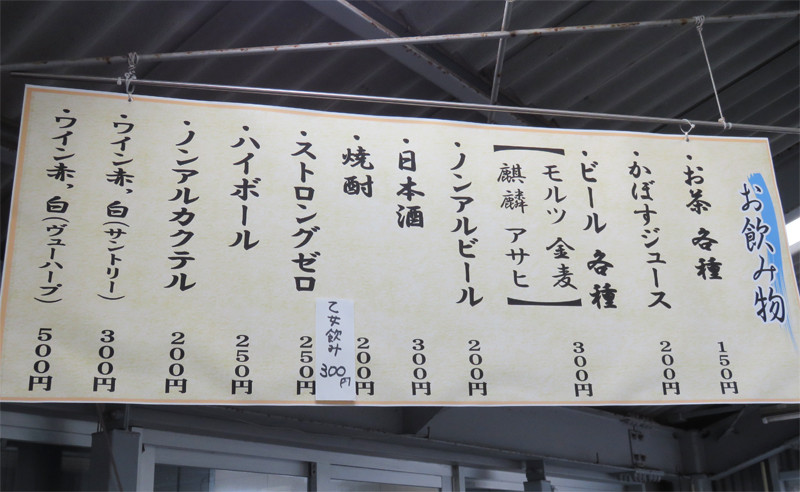 お飲み物
・お茶 各種 150円
・かぼすジュース 200円
・ビール 各種 300円
【モルツ 金麦
麒麟 アサヒ】
・ノンアルビール 200円
・日本酒 300円
・焼酎 200円
乙女飲み 300円
・ストロングゼロ 250円
・ハイボール 250円
・ノンアルカクテル 200円
・ワイン赤、白(サントリー) 300円
・ワイン赤、白(ヴューハーブ) 500円